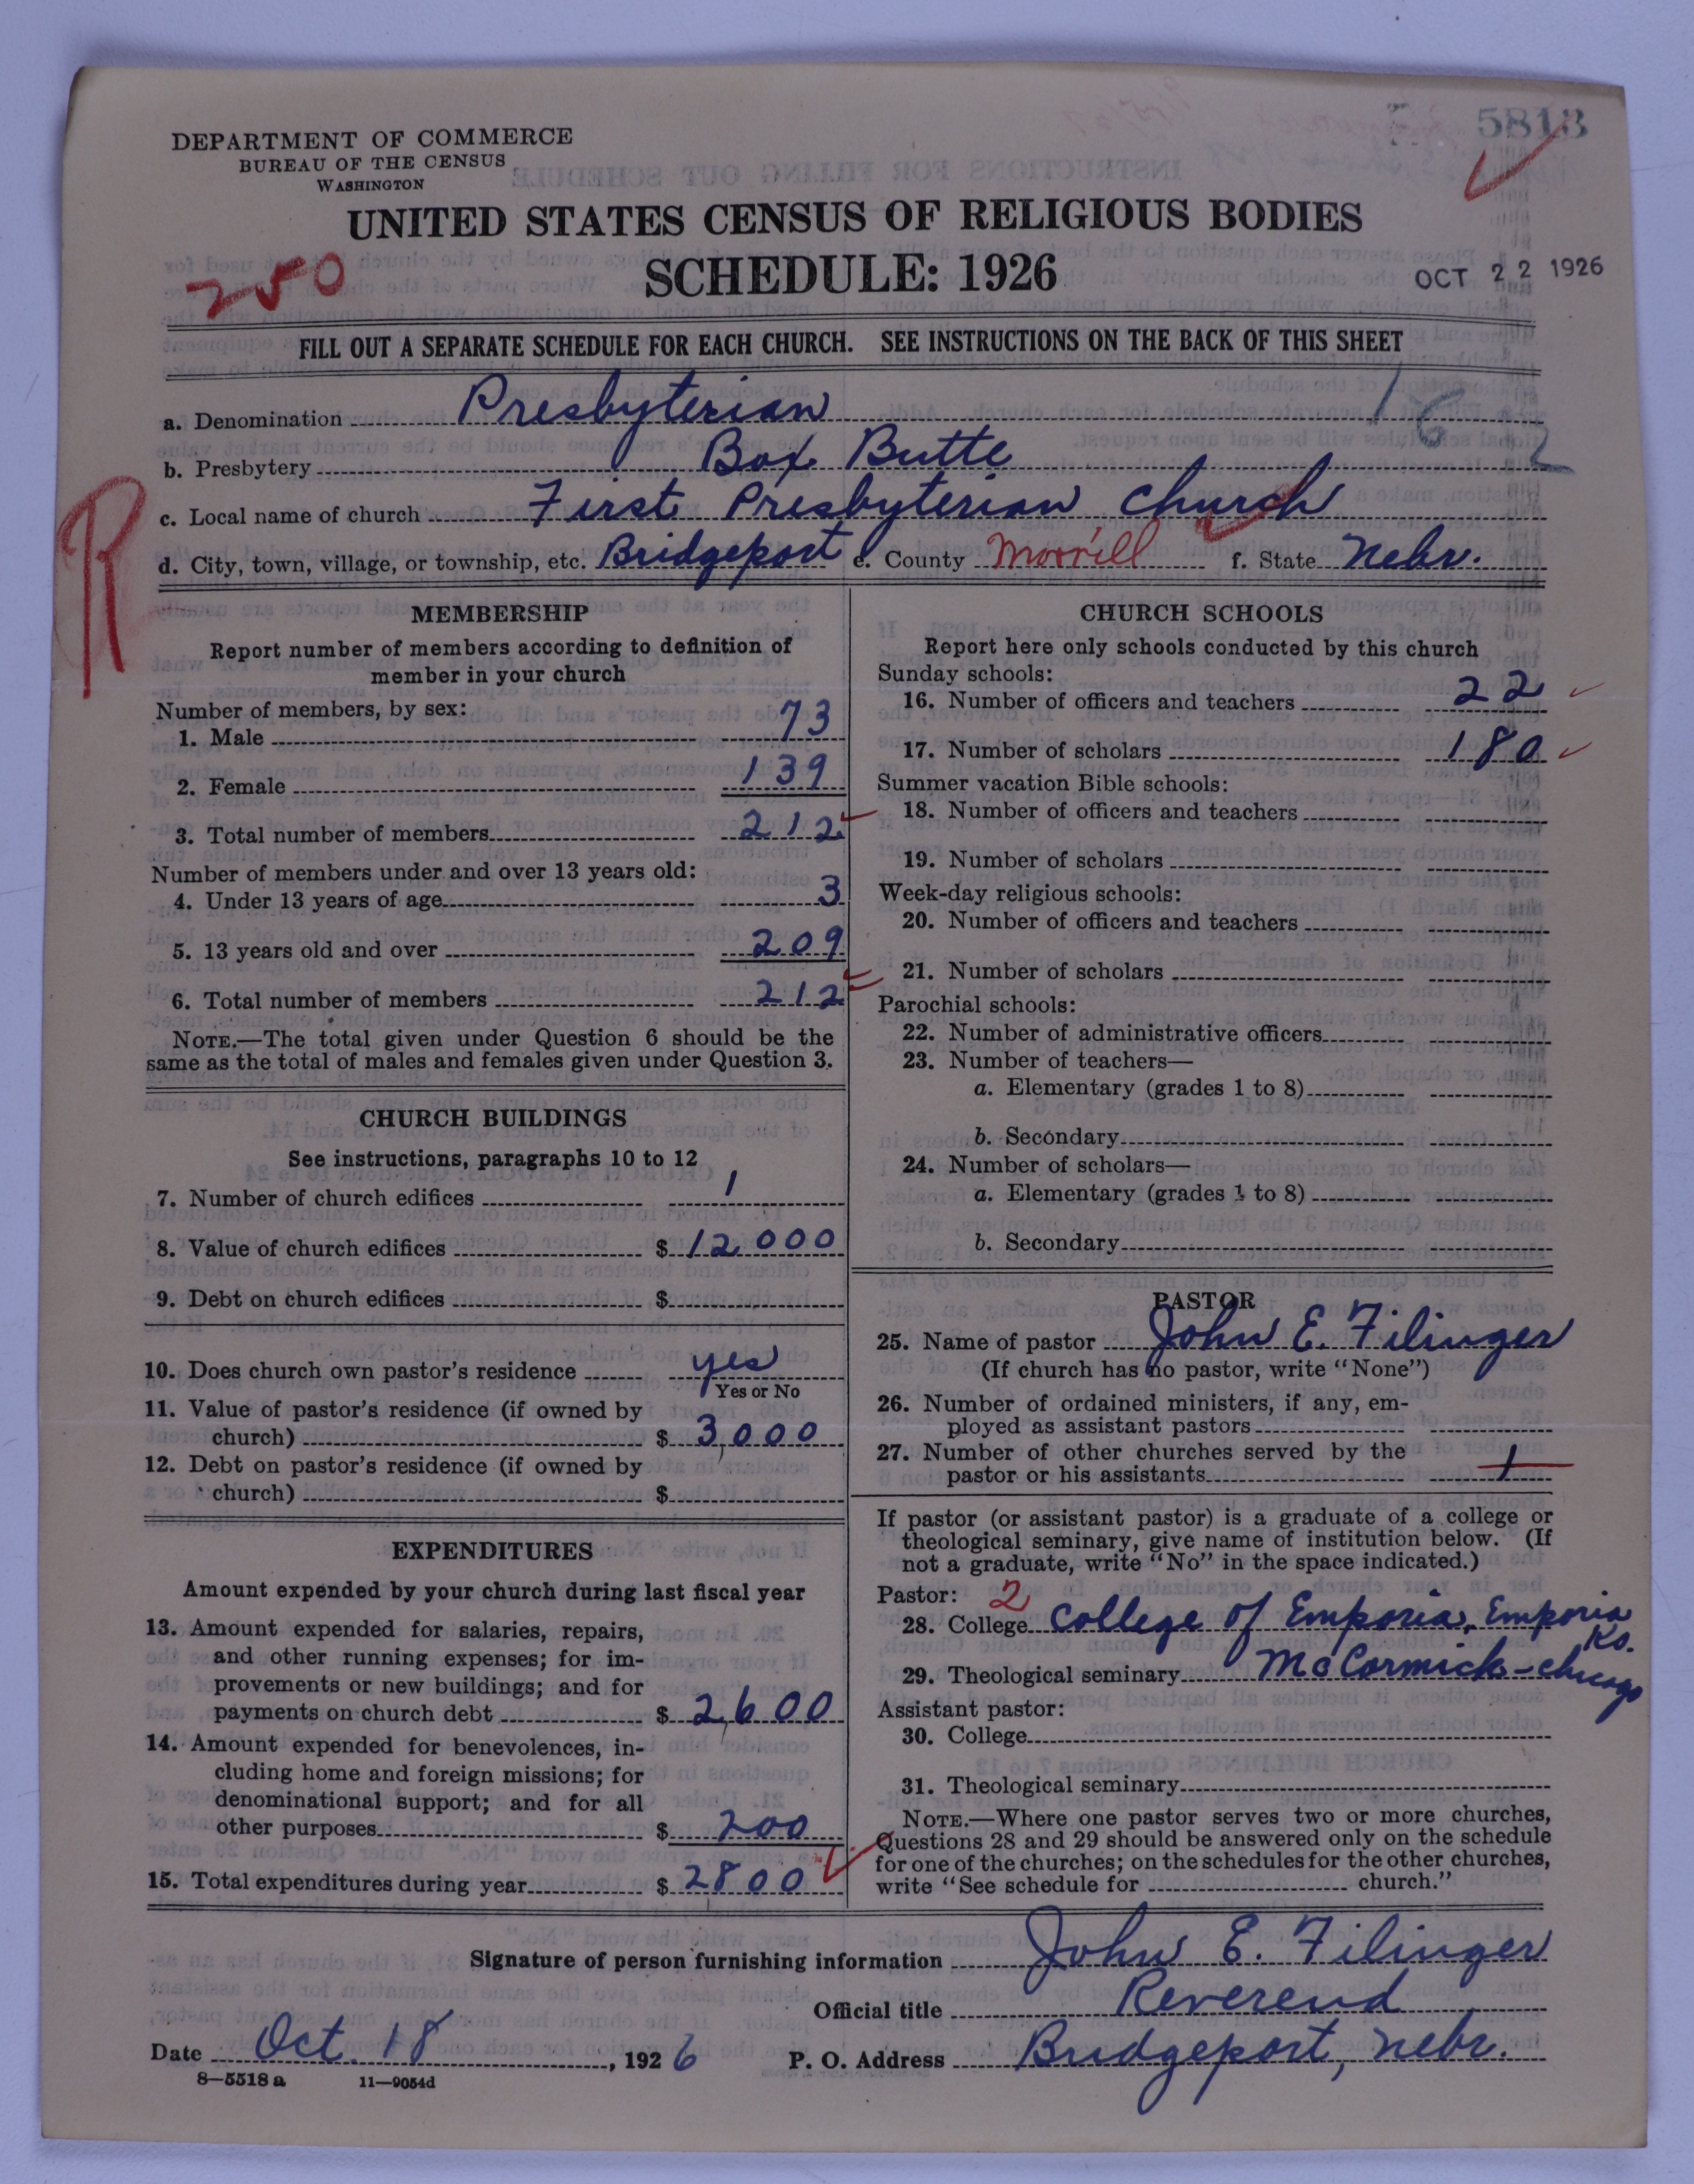 5813
DEPARTMENT OF COMMERCE
BUREAU OF THE CENSUS
WASHINGTON
UNITED STATES CENSUS OF RELIGIOUS BODIES
SCHEDULE: 1926
250
OCT 22 1926
FILL OUT A SEPARATE SCHEDULE FOR EACH CHURCH. SEE INSTRUCTIONS ON THE BACK OF THIS SHEET
a. Denomination Presbyterian
162
b. Presbytery Box Butte
c. Local name of church First Presbyterian Church
d. City, town, village, or township, etc. Bridgeport e. County Morrill f. State Nebr.
R
MEMBERSHIP
Report number of members according to definition of
member in your church
Number of members, by sex:
1. Male 73
2. Female 139
3. Total number of members 212
Number of members under and over 13 years old:
4. Under 13 years of age 3
5. 13 years old and over 209
6. Total number of members 212
NOTE.—The total given under Question 6 should be the
same as the total of males and females given under Question 3.
CHURCH BUILDINGS
See instructions, paragraphs 10 to 12
7. Number of church edifices 1
8. Value of church edifices $ 12000
9. Debt on church edifices $
10. Does church own pastor's residence yes
Yes or No
11. Value of pastor's residence (if owned by
church) $ 3,000
12. Debt on pastor's residence (if owned by
church) $
EXPENDITURES
Amount expended by your church during last fiscal year
13. Amount expended for salaries, repairs,
and other running expenses; for im-
provements or new buildings; and for
payments on church debt $ 2,600
14. Amount expended for benevolences, in-
cluding home and foreign missions; for
denominational support; and for all
other purposes $ 200
15. Total expenditures during year $ 2800
CHURCH SCHOOLS
Report here only schools conducted by this church
Sunday schools:
16. Number of officers and teachers 22
17. Number of scholars 180
Summer vacation Bible schools:
18. Number of officers and teachers
19. Number of scholars
Week-day religious schools:
20. Number of officers and teachers
21. Number of scholars
Parochial schools:
22. Number of administrative officers
23. Number of teachers—
a. Elementary (grades 1 to 8)
b. Secondary
24. Number of scholars—
a. Elementary (grades 1 to 8)
b. Secondary
PASTOR
25. Name of pastor John E. Filinger
(If church has no pastor, write "None")
26. Number of ordained ministers, if any, em-
ployed as assistant pastors
27. Number of other churches served by the
pastor or his assistants 1
If pastor (or assistant pastor) is a graduate of a college or
theological seminary, give name of institution below. (If
not a graduate, write "No" in the space indicated.)
Pastor: 2
28. College College of Emporia, Emporia
Ks.
29. Theological seminary McCormick - Chicago
Assistant pastor:
30. College
31. Theological seminary
NOTE.—Where one pastor serves two or more churches,
Questions 28 and 29 should be answered only on the schedule
for one of the churches; on the schedules for the other churches,
write "See schedule for church."
Signature of person furnishing information John E. Filinger
Official title Reverend
Date Oct. 18, 1926 P. O. Address Bridgeport, Nebr.
8—5518 a 11—9054d